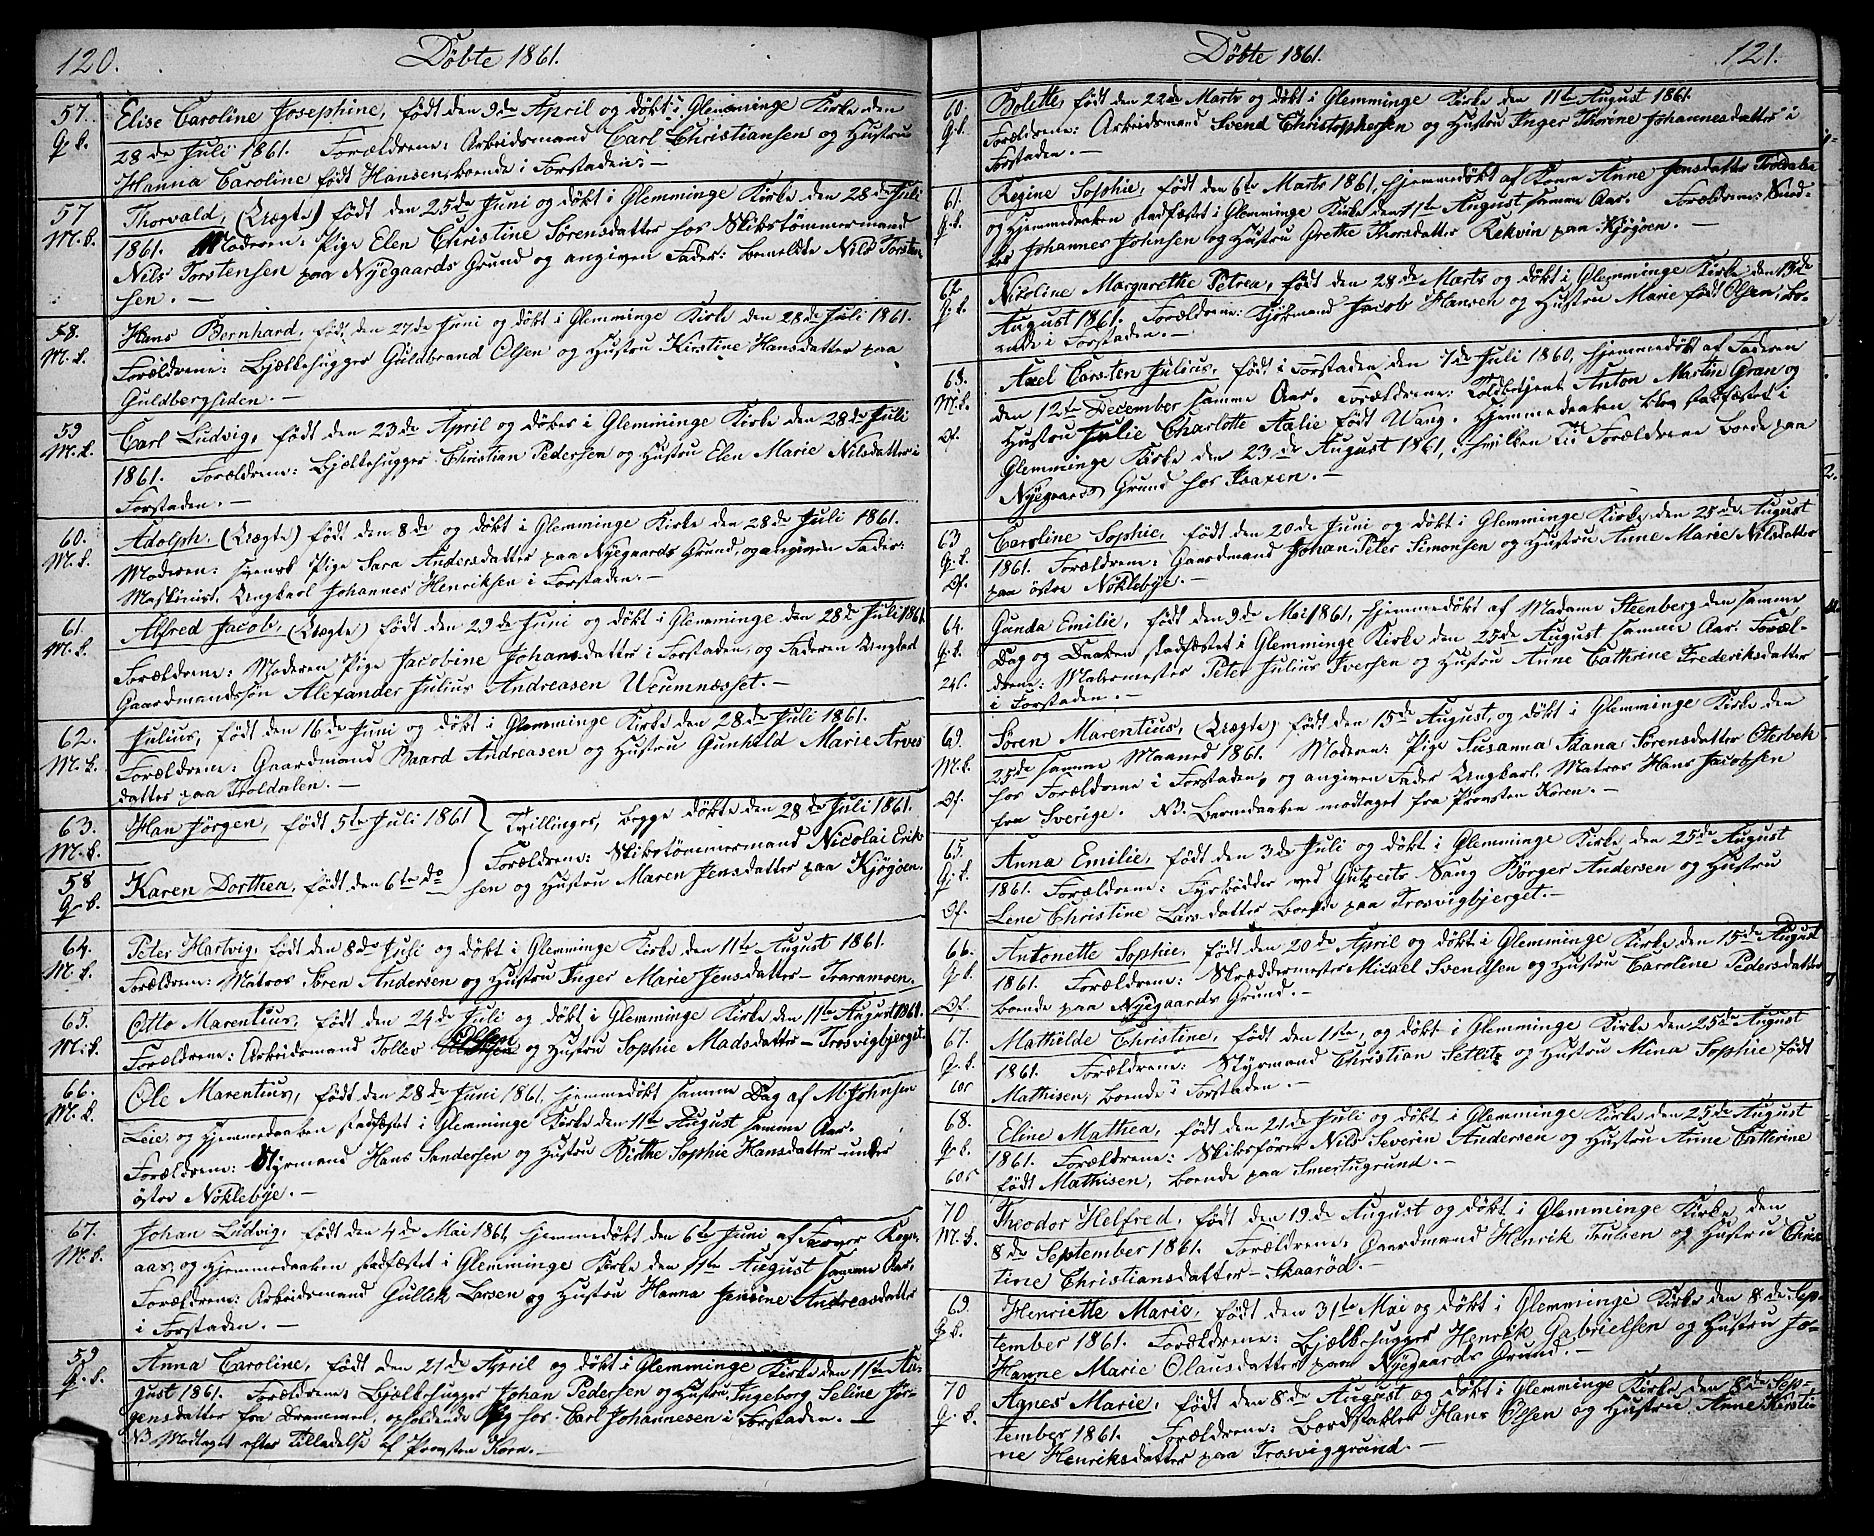 120.
Döbte 1861.
57.
Q. k.
Elise Caroline Josephine, født den 9de April og døbt i Glemminge Kirke den
28de Juli 1861. Forældrene: Arbeidsmand Carl Christiansen og Hustru
Hanna Caroline født Hansen, boende i Forstaden. —
57
M. k.
Thorvald, (Uægte) født den 25de Juni og døbt i Glemminge Kirke den 28de Juli
1861. Moderen: Pige Elen Christine Sørensdatter hos Skibstømmermand
Nils Torstensen paa Nyegaards Grund og angiven Fader: bemeldte Nils Torsten
sen. —
58.
M. k.
Hans Bernhard, født den 27de Juni og døbt i Glemminge Kirke den 28de Juli 1861.
Forældrene: Bjælkehugger Guldbrand Olsen og Hustru Kirstine Hansdatter paa
Guldbergsiden. —
59
M. k.
Carl Ludvig, født den 23de April og døbes i Glemminge Kirke den 28de Juli
1861. Forældrene: Bjælkehugger Christian Pedersen og Hustru Elen Marie Nilsdatter i
Forstaden. —
60.
M. k.
Adolph. (Uægte) født den 8de og døbt i Glemminge Kirke den 28de Juli 1861.
Moderen: svensk Pige Sara Andersdatter paa Nyegaards Grund, og angiven Fader:
Maskinist, Ungkarl Johannes Henriksen i Forstaden. —
61.
M. k.
Alfred Jacob, (Uægte) født den 29de Juni og døbt i Glemminge den 28de Juli 1861
Forældrene: Moderen Pige Jacobine Johansdatter i Forstaden, og Faderen Ungkarl
Gaardmandssön Alexander Julius Andreasen Ueumnæsset. —
62.
M. k.
Julius, født den 16de Juni og døbt i Glemminge Kirke den 28de Juli 1861.
Forældrene: Gaardmand Baard Andreasen og Hustru Gunhild Marie Arves
datter paa Troldalen. —
63.
M. k.
Han Jörgen, født 5te Juli 1861
58
Q. k.
Karen Dorthea, født den 6te do
Tvillinger, begge døbte den 28de Juli 1861.
Forældrene: Skibstömmermand Nicolai Erik
sen og Hustru Maren Jensdatter paa Kjøgøen.
64.
M. k.
Peter Hartvig, født den 8de Juli og døbt i Glemminge Kirke den 11te August 1861.
Forældrene: Matros Sören Andersen og Hustru Inger Marie Jensdatter — Traramoen.
65.
M. k.
Otto Marentius, født den 24de Juli og døbt i Glemminge Kirke den 11te August 1861.
Forældrene: Arbeidsmand Tollev Olsen og Hustru Sophie Madsdatter — Trosvigbjerget.
66.
M. k.
Ole Marentius, født den 28de Juni 1861, hjemmedøbt samme Dag af M Johnsen
Leie og Hjemmedaaben stadfæstet i Glemminge Kirke den 11te August samme Aar.
Forældrene: Styrmand Hans Sandersen og Hustru Birthe Sophie Hansdatter under
østre Nöklebye. —
67.
M. k.
Johan Ludvig, født den 4de Mai 1861, hjemmedøbt den 6te Juni af
aas, og Hjemmedaaben stadfæstet i Glemminge Kirke den 11te August samme Aar.
Forældrene: Arbeidsmand Gullik Larsen og Hustru Hanna Jensine Andreasdatter
i Forstaden. —
59
Q. k.
Anna Caroline, født den 21de April og døbt i Glemminge Kirke den 11te Au-
gust 1861. Forældrene: Bjælkehugger Johan Pedersen og Hustru Ingeborg Seline Jör-
gensdatter fra Drammen, opholdende sig hos Carl Johannesen i Forstaden. —
NB Modtaget efter Tilladelse af Provsten Koren. —
Döbte 1861.
121.
60.
Q. k.
Bolette, født den 22de Marts og døbt i Glemminge Kirke den 11te August 1861.
Forældrene: Arbeidsmand Svend Christophersen og Hustru Inger Thorine Johannesdatter i
Forstaden. —
61.
Q. k.
Regine Sophie, født den 6te Marts 1861, hjemmedøbt af Kone Anne Jensdatter Troldalen
og Hjemmedaaben stadfæstet i Glemminge Kirke den 11te August samme Aar. Forældrene: Sned-
ker Johannes Johnsen og Hustru Grethe Thorsdatter Rekvin paa Kjøgøen. —
62.
Q. k.
Nicoline Margarethe Petrea, født den 28de Marts og døbt i Glemminge Kirke den 13de
August 1861. Forældrene: Kjörmand Jacob Hansen og Hustru Marie født Olsen, bo-
ende i Forstaden. —
68.
M. k.
Of.
Axel Carsten Julius, født i Forstaden den 7de Juli 1860, hjemmedøbt af Faderen
den 12te December samme Aar. Forældrene: Toldbetjent Anton Martin Gran og
Hustru Julie Charlotte Aalie født Wang. Hjemmedaaben blev stadfæstet i
Glemminge Kirke den 23de August 1861, i hvilken Tid Forældrene boede paa
Nyegaards Grund hos Isaxen. —
63
Q. k.
Of.
Caroline Sophie, født den 20de Juni og døbt i Glemminge Kirke den 25de August
1861. Forældrene: Gaardmand Johan Peter Simonsen og Hustru Anne Marie Nilsdatter
paa østre Nöklebye. —
64.
Q. k.
24s.
Gunda Emilie, født den 9de Mai 1861, hjemmedøbt af Madame Steenberg den samme
Dag og Daaben stadfæstet i Glemminge Kirke den 25de August samme Aar. Foræl-
drene: Malermester Peter Julius Iversen og Hustru Anne Cathrine Frederiksdatter
i Forstaden. —
69.
M. k.
Of.
Sören Marentius, (Uægte) født den 15de August, og døbt i Glemminge Kirke den
25de samme Maaned 1861. Moderen: Pige Susanna Stana Sörensdatter Otterbek
hos Forældrene i Forstaden, og angiven Fader Ungkarl, Matros Hans Jacobsen
fra Sverige. NB. Barnedaaben modtaget fra Provsten Koren. —
65.
Q. k.
Of.
Anna Emilie, født den 3de Juli og døbt i Glemminge Kirke den 25de August
1861. Forældrene: Fyrbøder ved Gutzeits Saug Börger Andersen og Hustru
Lene Christine Larsdatter boende paa Trosvigbjerget. —
66.
Q. k.
Of.
Antonette Sophie, født den 20de April og døbt i Glemminge Kirke den 15de August
1861. Forældrene: Skræddermester Micael Svendsen og Hustru Caroline Pedersdatter
boende paa Nyegaards Grund. —
67.
Q. k.
60s
Mathilde Christine, født den 11te, og døbt i Glemminge Kirke den 25de August
1861. Forældrene: Styrmand Christian Setlitz og Hustru Mina Sophie født
Mathisen, boende i Forstaden. —
68.
Q. k.
60s
Eline Mathea, født den 21de Juli og døbt i Glemminge Kirke den 25de August
1861. Forældrene: Skibsfører Nils Severin Andersen og Hustru Anne Catherine
født Mathisen, boende paa Smertugrund. —
70
M. k.
Theodor Helfred, født den 19de August og døbt i Glemminge Kirke den
8de September 1861. Forældrene: Gaardmand Henrik Trulsen og Hustru Chris
tine Christiansdatter — Skaaröd. —
69.
Q. k.
Henriette Marie, født den 31te Mai og døbt i Glemminge Kirke den 8de Sep-
tember 1861. Forældrene: Bjælkehugger Henrik Gabrielsen og Hustru Jo-
hanne Marie Olausdatter paa Nyegaards Grund. —
70
Q. k.
Agnes Marie, født den 8de August og døbt i Glemminge Kirke den 8de Sep-
tember 1861. Forældrene: Bordstabler Hans Olsen og Hustru Anne Kirsti
ne Henriksdatter paa Trosviggrund. —